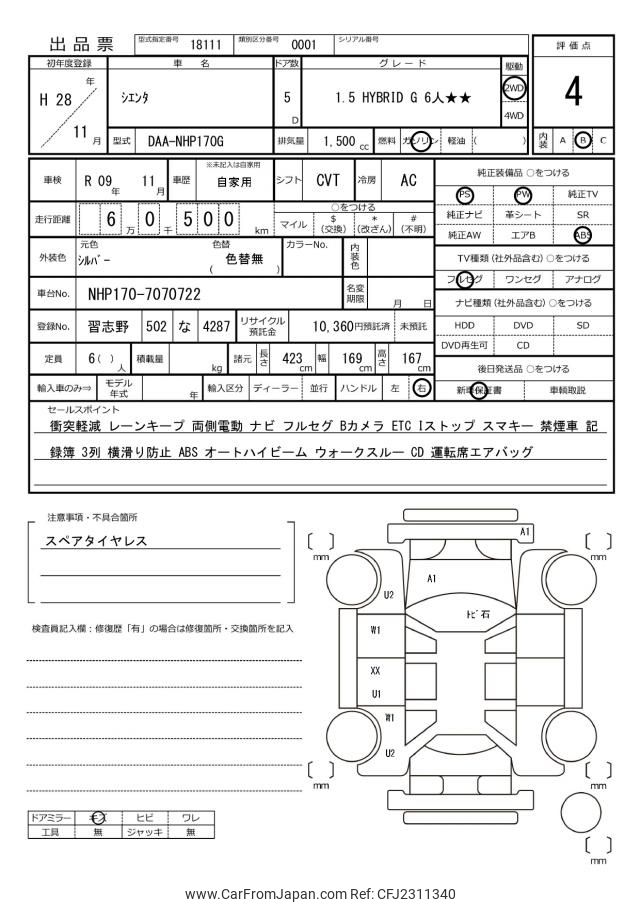 出品票
型式指定番号 18111 類別区分番号 0001 シリアル番号
評価点
初年度登録 車名 ドア数 グレード 駆動
H 28 年 11 月 シエンタ 5 D 1.5 HYBRID G 6人★★ 2WD 4WD
4
型式 DAA-NHP170G 排気量 1,500 cc 燃料 ガソリン 軽油 ( )
内装 A B C
車検 R 09 年 11 月 車歴 ※未記入は自家用 自家用 シフト CVT 冷房 AC
純正装備品 ○をつける
PS PW 純正TV
純正ナビ 革シート SR
純正AW エアB ABS
走行距離 6 万 0 千 5 0 0 km
○をつける
マイル $ (交換) * (改ざん) # (不明)
外装色 元色 シルバー 色替 ( 色替無 ) カラーNo. 内装色
TV種類 (社外品含む) ○をつける
フルセグ ワンセグ アナログ
車台No. NHP170-7070722 名変期限 月 日
ナビ種類 (社外品含む) ○をつける
HDD DVD SD
DVD再生可 CD
登録No. 習志野 502 な 4287 リサイクル預託金 10,360円預託済 未預託
定員 6 ( ) 人 積載量 kg 諸元 長さ 423 cm 幅 169 cm 高さ 167 cm
後日発送品 ○をつける
新車保証書 車輌取説
輸入車のみ⇒ モデル年式 年 輸入区分 ディーラー 並行 ハンドル 左 右
セールスポイント
衝突軽減 レーンキープ 両側電動 ナビ フルセグ Bカメラ ETC Iストップ スマキー 禁煙車 記
録簿 3列 横滑り防止 ABS オートハイビーム ウォークスルー CD 運転席エアバッグ
注意事項・不具合箇所
スペアタイヤレス
検査員記入欄：修復歴「有」の場合は修復箇所・交換箇所を記入
A1
mm
mm
A1
U2
トビ石
W1
XX
U1
W1
U2
mm
mm
mm
ドアミラー キズ ヒビ ワレ
工具 無 ジャッキ 無
www.CarFromJapan.com Ref: CFJ2311340